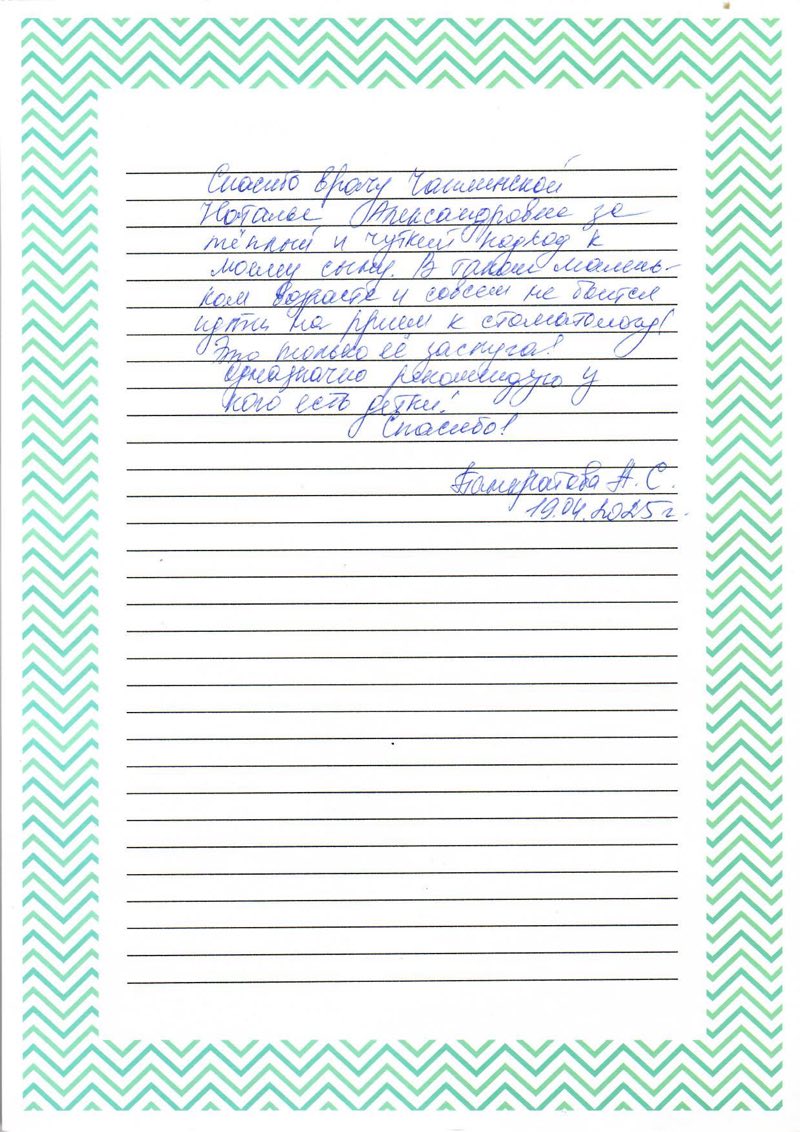 Спасибо врачу Чашминской
Наталье Александровне за
тёплый и чуткий подход к
моему сыну. В таком малень-
ком возрасте и совсем не боится
идти на прием к стоматологу!
Это только её заслуга!
Однозначно рекомендую у
кого есть детки!
Спасибо!
А. С.
19.04.2025 г.